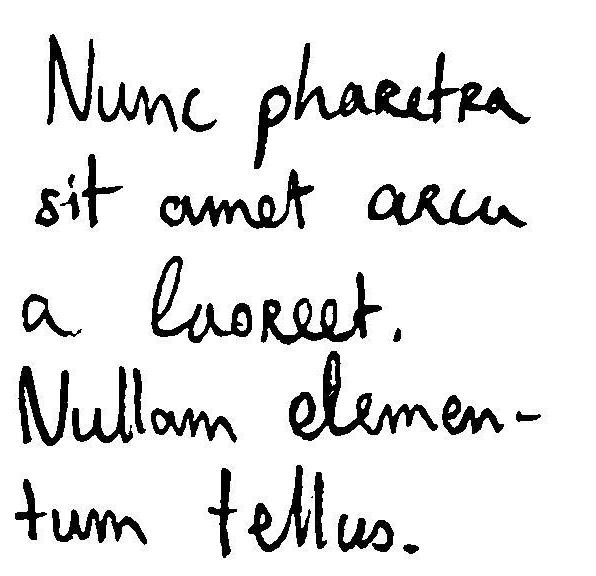 Nunc pharetra
sit amet arcu
a laoreet.
Nullam elemen-
tum tellus.